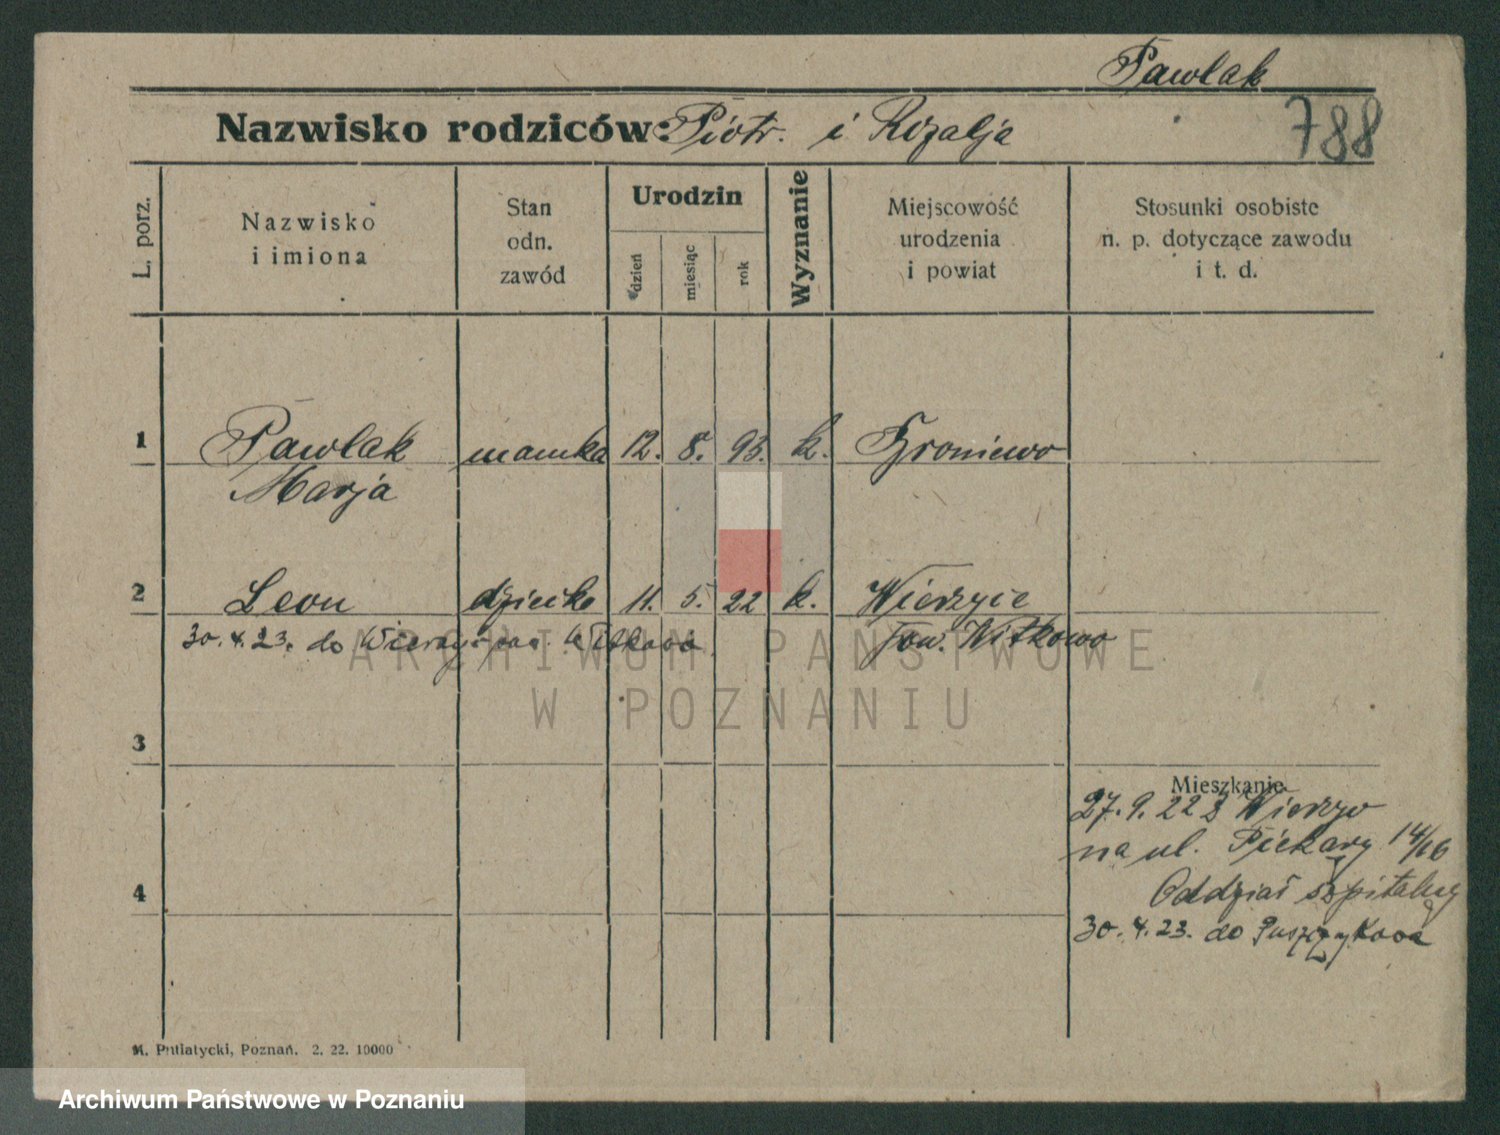 Pawlak
Nazwisko rodziców: Piotr. i Rozalja
788
L. porz.
Nazwisko
i imiona
Stan
odn.
zawód
Urodzin
dzień
miesiąc
rok
Wyznanie
Miejscowość
urodzenia
i powiat
Stosunki osobiste
n. p. dotyczące zawodu
i t. d.
1 Pawlak mamka 12. 8. 93. k. Groniewo
Marja
2 Leon dziecko 11. 5. 22 k. Wierzyce
30.4.23. do Wierzyc pow. Witkowo
Pow. Witkowo
3
Mieszkanie
27.9.22 z
na ul. Piekary 14/16
4
Oddział szpitalny
30.4.23. do Puszczykowa
M. Putiatycki, Poznań. 2. 22. 10000
ARCHIWUM PAŃSTWOWE
W POZNANIU
Archiwum Państwowe w Poznaniu